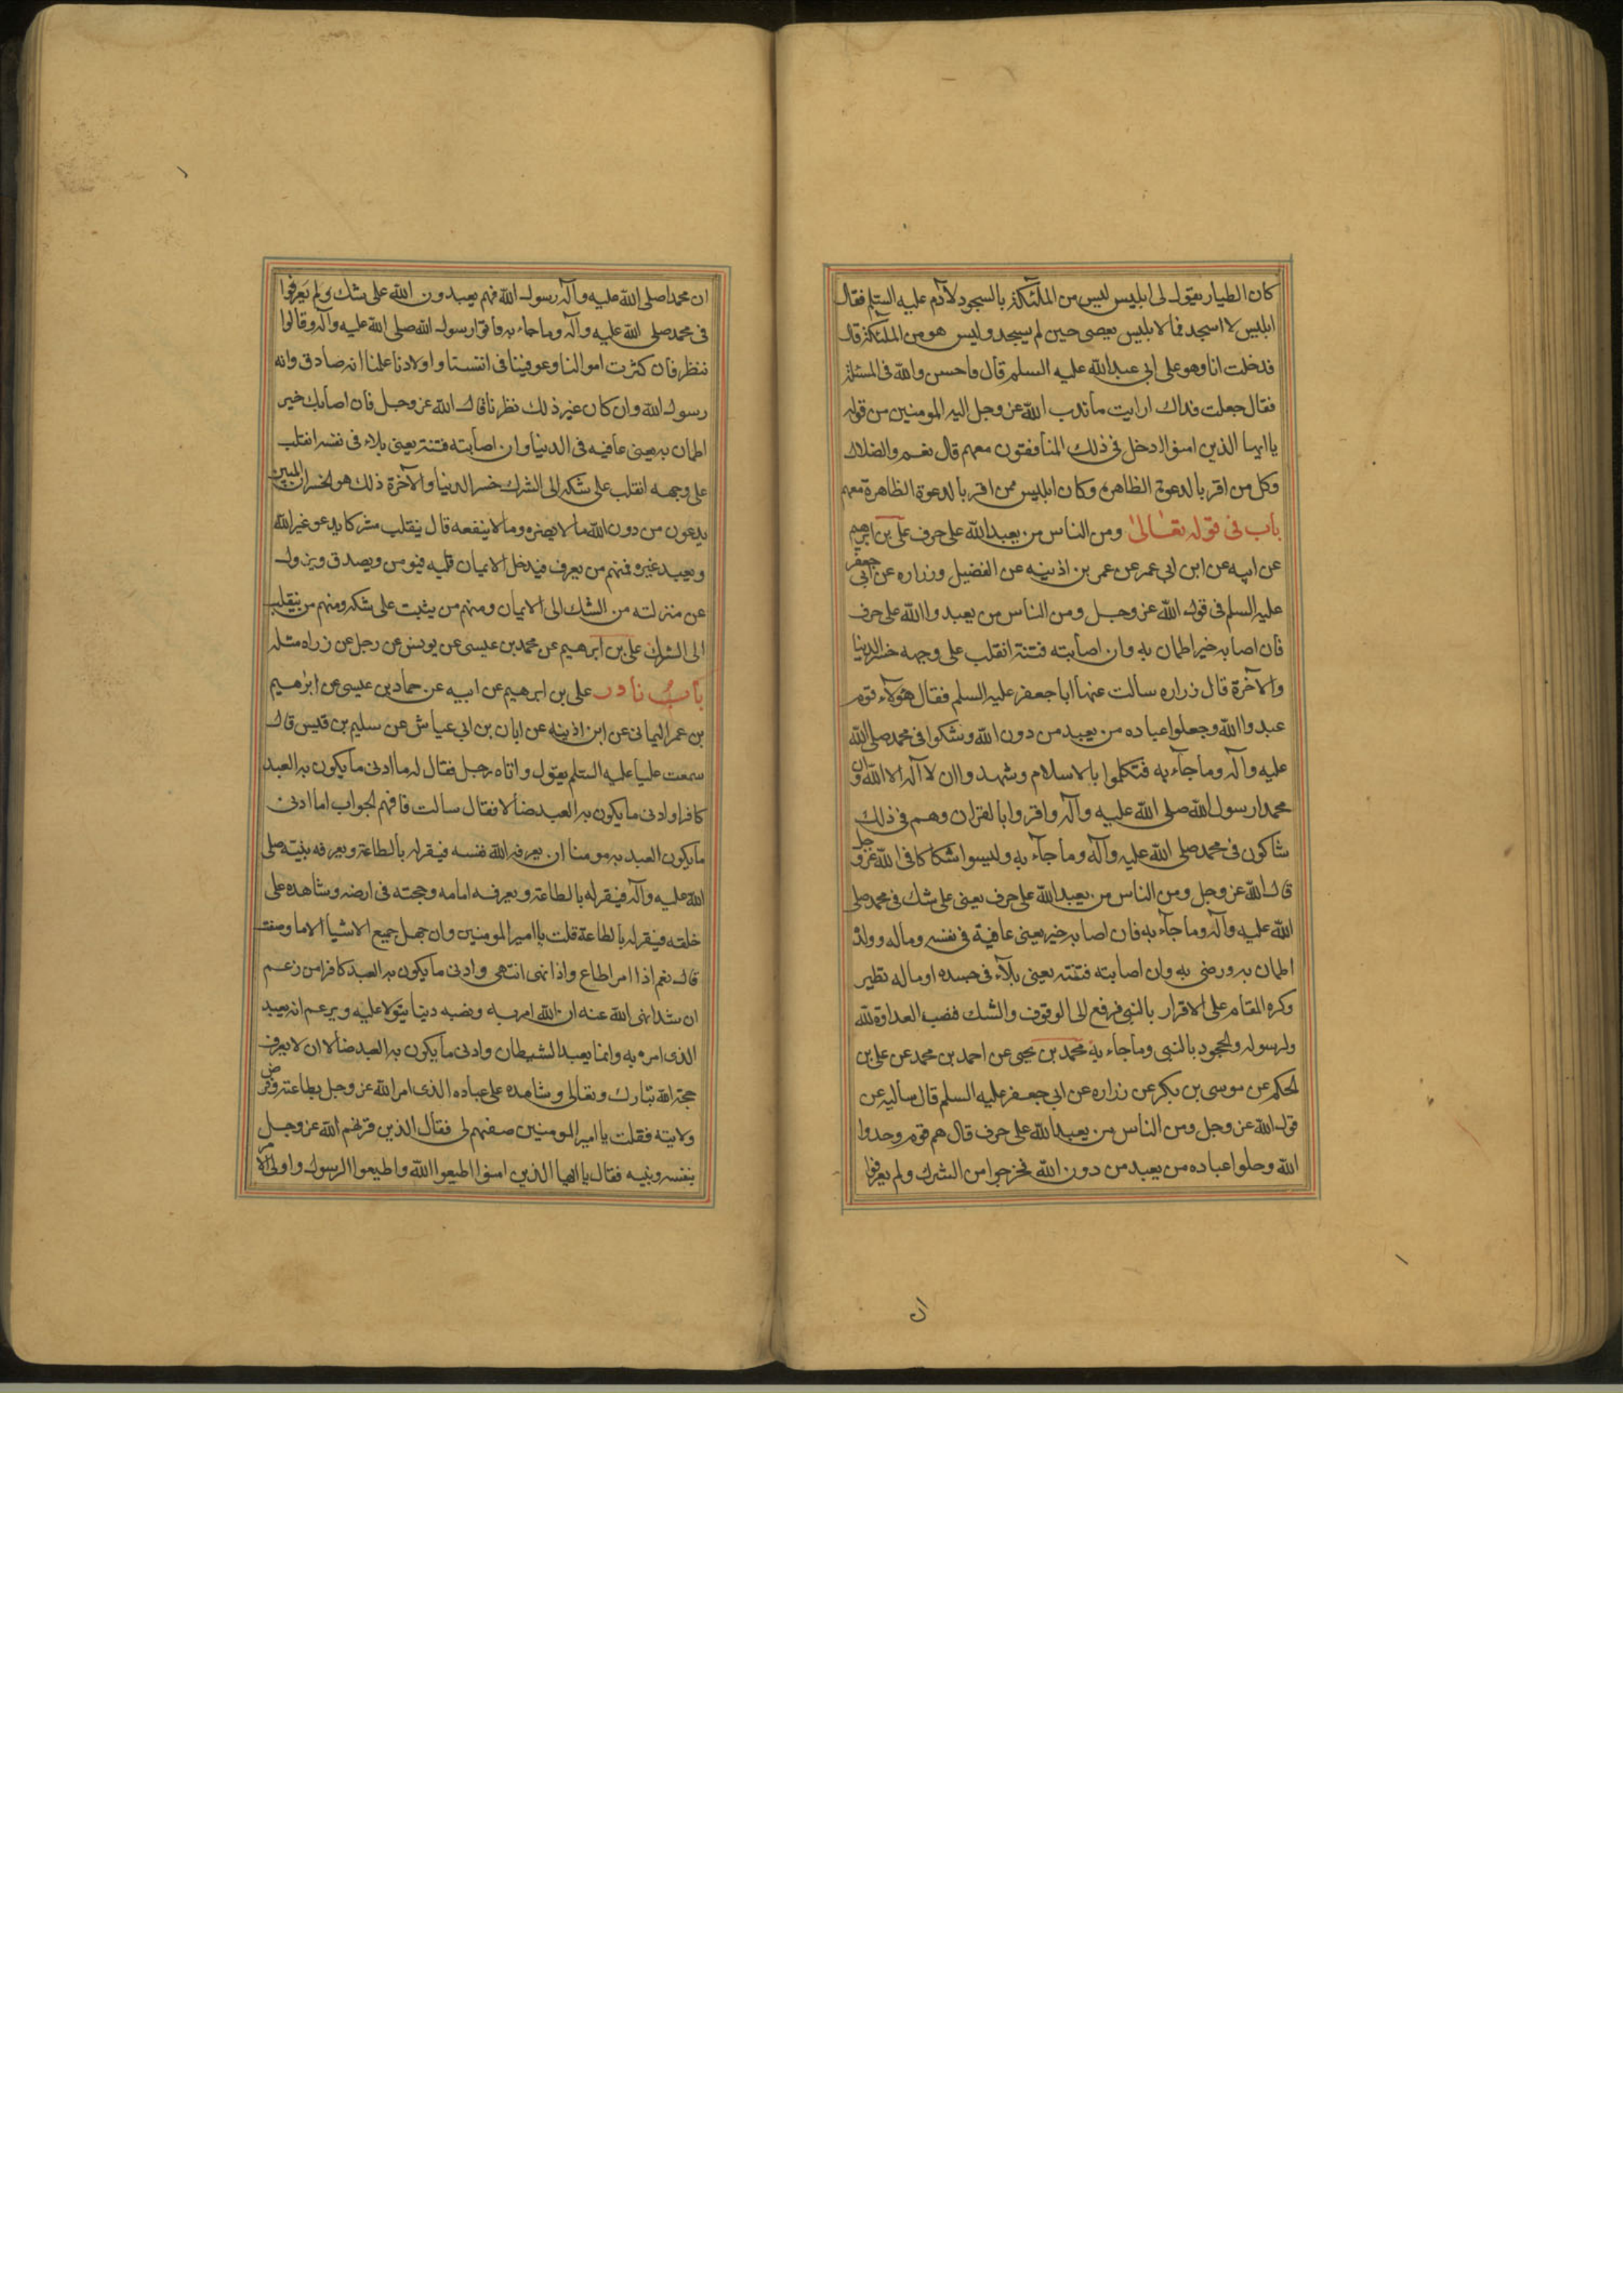 كان الطيار يقول لى ابليس ليس من الملئكة بالسجود لآدم عليه السلم فقال
ابليس لا اسجد فما لابليس يعصى حين لم يسجد وليس هو من الملئكة قال
فدخلت انا وهو على ابى عبد الله عليه السلم قال فاحسن والله فى المسئلة
فقال جعلت فداك ارايت ما ندب الله عز وجل اليه المومنين من قوله
يا ايها الذين امنوا ادخل فى ذلك المنافقون معهم قال نعم والضلال
وكل من اقر بالدعوة الظاهرة وكان ابليس ممن اقر بالدعوة الظاهرة معهم
باب فى قوله تعالى ومن الناس من يعبد الله على حرف على بن ابرهيم
عن ابيه عن ابن ابى عمر عن عمر بن اذينه عن الفضيل وزراره عن ابى جعفر
عليه السلم فى قول الله عز وجل ومن الناس من يعبدوا الله على حرف
فان اصابه خير اطمان به وان اصابته فتنة انقلب على وجهه خسر الدنيا
والآخرة قال زراره سالت عنها ابا جعفر عليه السلم فقال هؤلاء قوم
عبدوا الله وجعلوا عباده من يعبد من دون الله وشكوا فى محمد صلى الله
عليه وآله وما جآء به فتكلموا بالاسلام وشهدوا ان لا آله الا الله وان
محمدا رسول الله صلى الله عليه وآله واقروا بالقران وهم فى ذلك
شاكون فى محمد صلى الله عليه وآله وما جآء به وليسوا شكاكا فى الله عز وجل
قال الله عز وجل ومن الناس من يعبد الله على حرف يعنى على شك فى محمد صلى
الله عليه وآله وما جآء به فان اصابه خير يعنى عافية فى نفسه وماله وولده
اطمان به ورضى به وان اصابته فتنته يعنى بلآء فى جسده او ماله تطير
وكره المقام على الاقرار بالنبى فرفع الى الوقوف والشك فنصب العداوة لله
ولرسوله والجحود بالنبى وما جاء به محمد بن يحيى عن احمد بن محمد عن على بن
الحكم عن موسى بن بكر عن زراره عن ابى جعفر عليه السلم قال ساليه عن
قول الله عز وجل ومن الناس من يعبد الله على حرف قال هم قوم وحدوا
الله وحلوا عباده من يعبد من دون الله فخرجوا من الشرك ولم يعرفوا
ان
ان محمدا صلى الله عليه وآله رسول الله فهم يعبدون الله على شك ولم يعرفوا
فى محمد صلى الله عليه وآله وما جاء به فاتوا رسول الله صلى الله عليه وآله وقالوا
ننظر فان كثرت اموالنا وعوفينا فى انفسنا واولادنا علمنا انه صادق وانه
رسول الله وان كان غير ذلك نظرنا قال الله عز وجل فان اصابك خير
اطمان به يعنى عافيه فى الدنيا وان اصابته فتنة يعنى بلاء فى نفسه انقلب
على وجهه انقلب على شكه الى الشرك خسر الدنيا والآخرة ذلك هو الخسران المبين
يدعون من دون الله ما لا يضره وما لا ينفعه قال ينقلب مشركا يدعو غير الله
ويعبد غيره فمنهم من يعرف فيدخل الايمان قلبه فيومن ويصدق ويزول
عن منزلته من الشك الى الايمان ومنهم من يثبت على شكه ومنهم من ينقلب
الى الشرك على بن ابرهيم عن محمد بن عيسى عن يونس عن رجل عن زراه مثله
باب نادر على بن ابرهيم عن ابيه عن حماد بن عيسى عن ابرهيم
بن عمر اليمانى عن ابن اذينه عن ابان بن ابى عياش عن سليم بن قيس قال
سمعت عليا عليه السلم يقول واتاه رجل فقال له ما ادنى ما يكون به العبد
كافرا وادنى ما يكون به العبد ضالا فقال سالت فافهم الجواب اما ادنى
ما يكون العبد به مومنا ان يعرفه الله نفسه فيقر له بالطاعة ويعرفه نبيه صلى
الله عليه وآله فيقر له بالطاعة ويعرفه امامه وحجته فى ارضه وشاهده على
خلقه فيقر له بالطاعة قلت يا امير المومنين وان جهل جميع الاشيآ الا ما وصفت
قال نعم اذا امر اطاع واذا نهى انتهى وادنى ما يكون به العبد كافرا من زعم
ان شيئا نهى الله عنه ان الله امر به ونصبه دينا يتولا عليه ويزعم انه يعبد
الذى امره به وانما يعبد الشيطان وادنى ما يكون به العبد ضالا ان لا يعرف
حجة الله تبارك وتعالى وشاهده على عباده الذى امر الله عز وجل بطاعته وفرض
ولايته فقلت يا امير المومنين صفهم لى فقال الذين قرنهم الله عز وجل
بنفسه ونبيه فقال يا ايها الذين امنوا اطيعوا الله واطيعوا الرسول واولى الامر